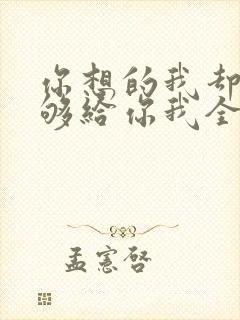 你想的我却
够给你我全
孟宪启